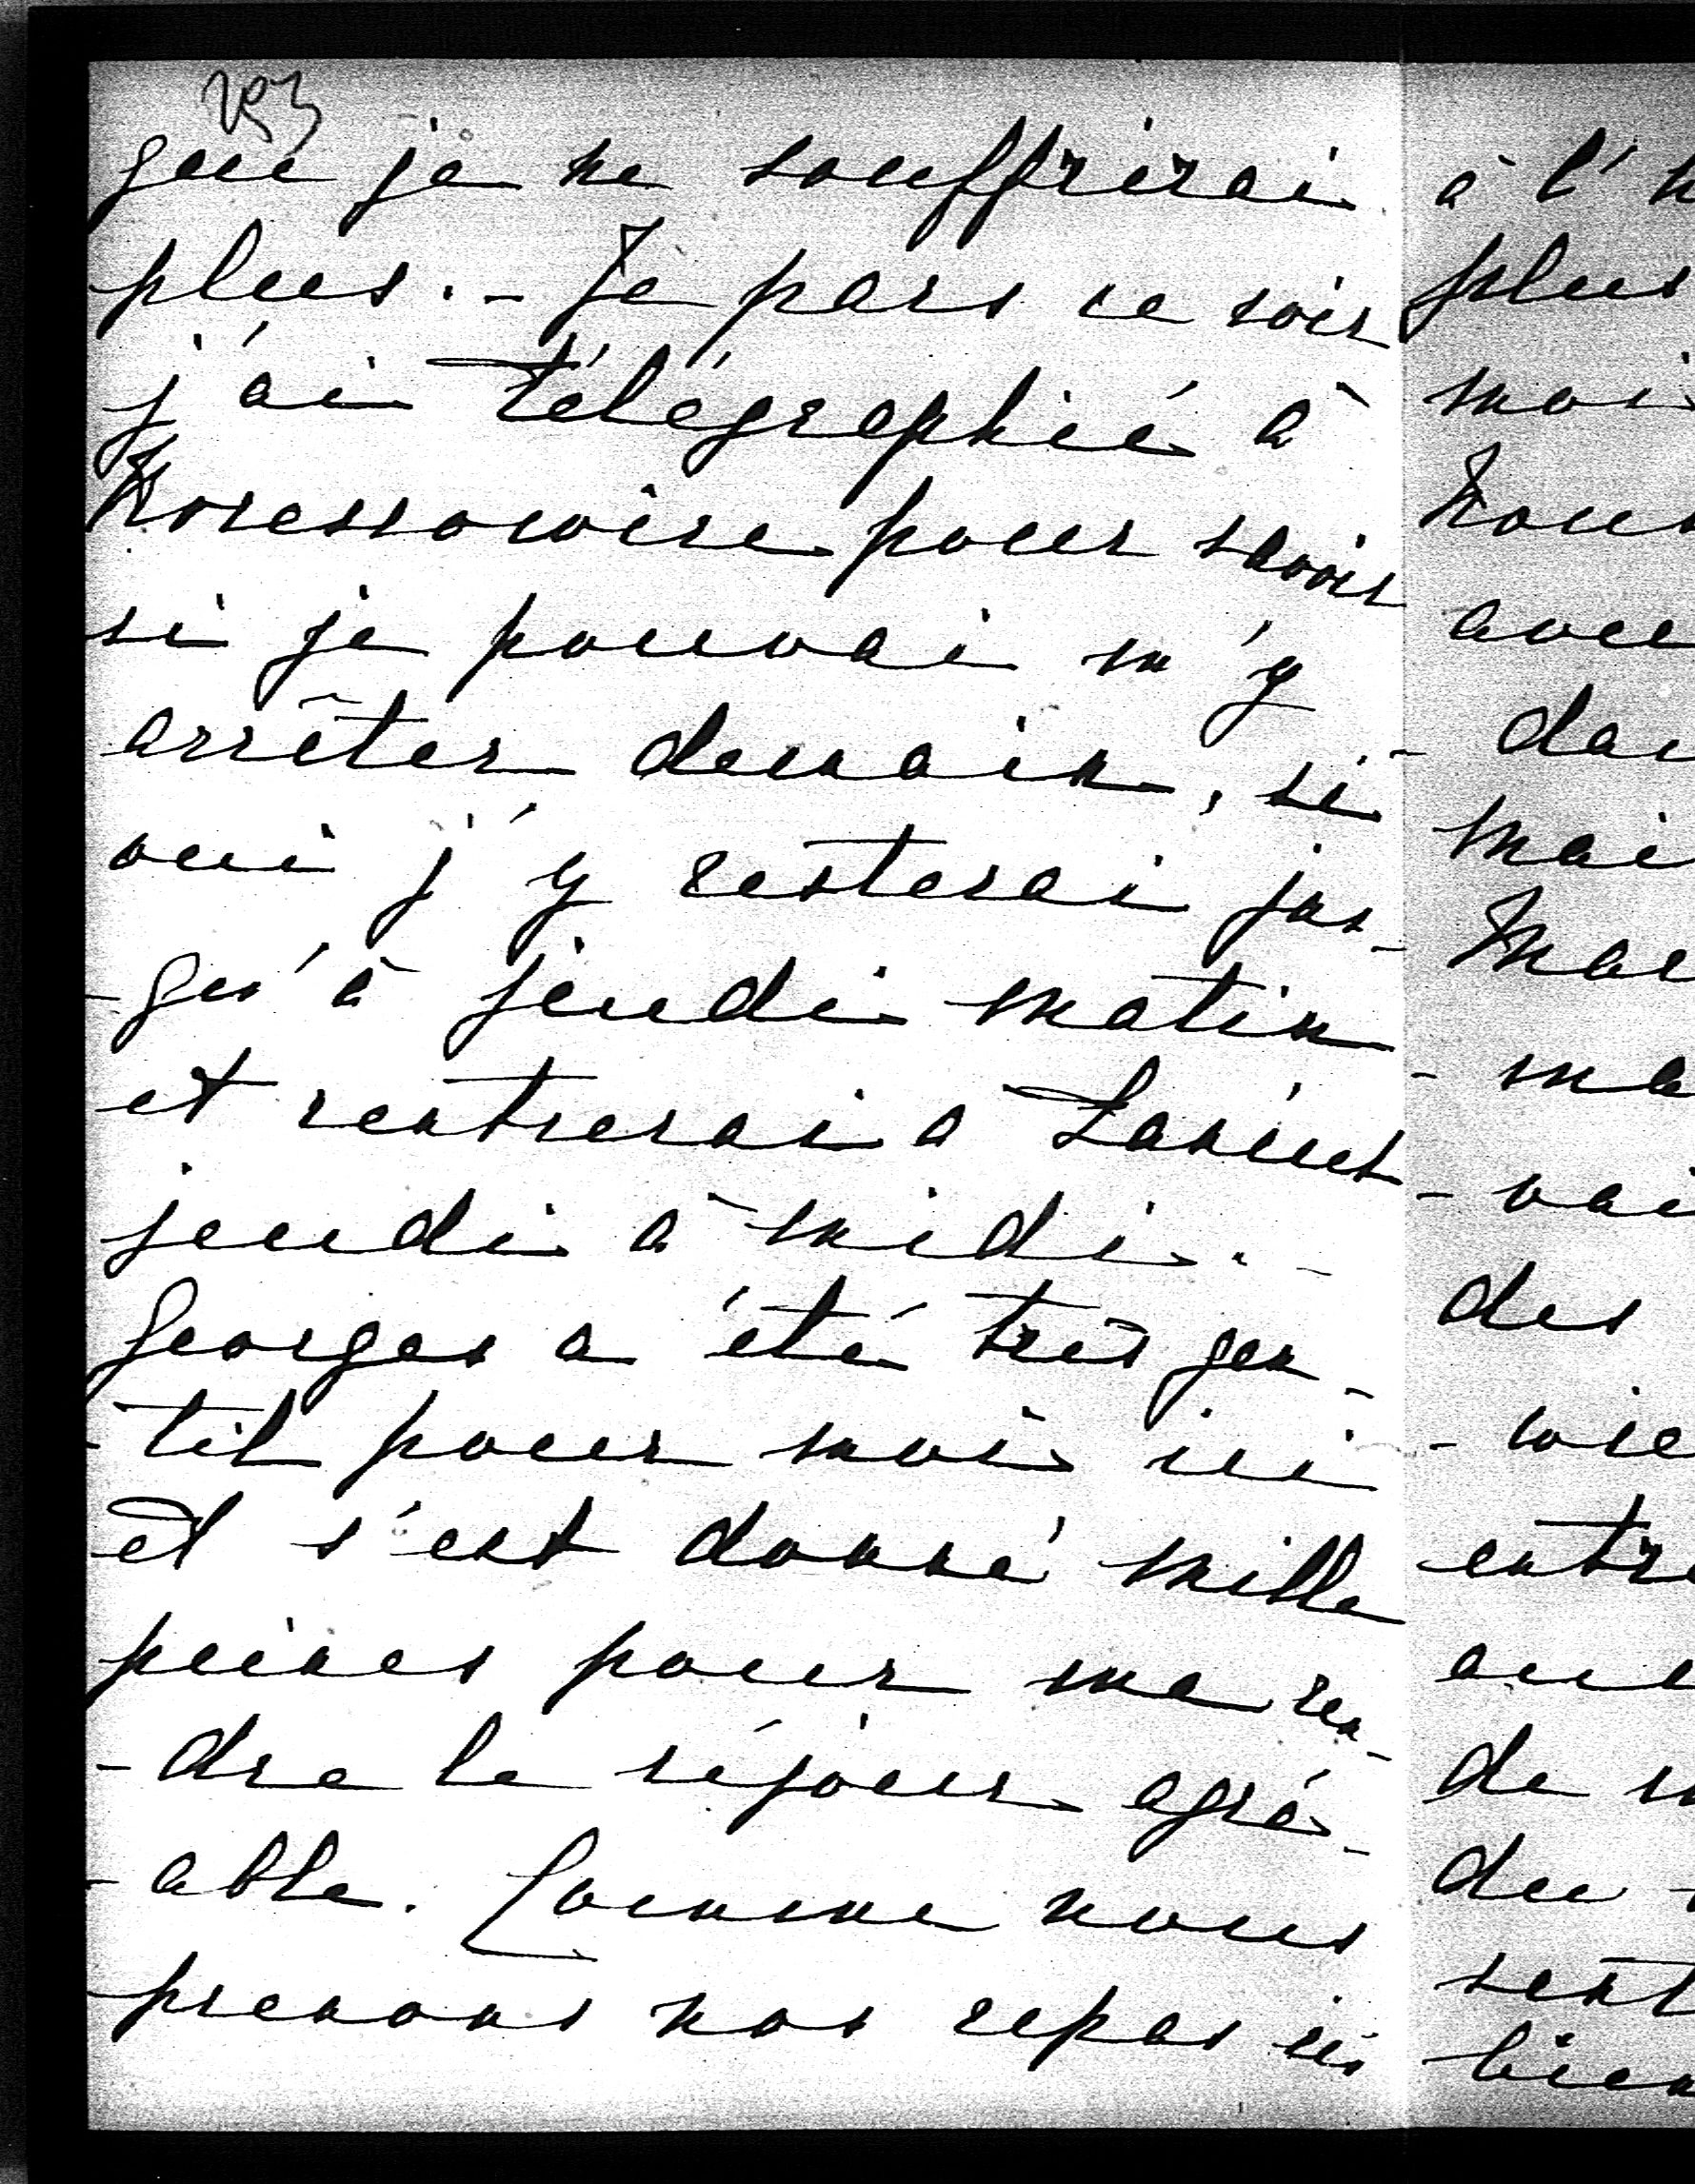 253
que je ne souffrirai
plus. - Je pars ce soir
j'ai télégraphié à
pour savoir
si je pouvai m'y
arrêter demain, si
oui j'y resterai jus-
-qu'à jeudi matin
et rentrerai a Lancut
jeudi à midi. -
Georges a été très gen-
-til pour moi ici
et s'est donné mille
peines pour me ren-
-dre le séjour agré-
-able. Comme nous
prenons nos repas ici
à l'h
plus
moi
avec
- dan
mai
- ma
- vai
des
- wie
entre
de
du
sent
bien